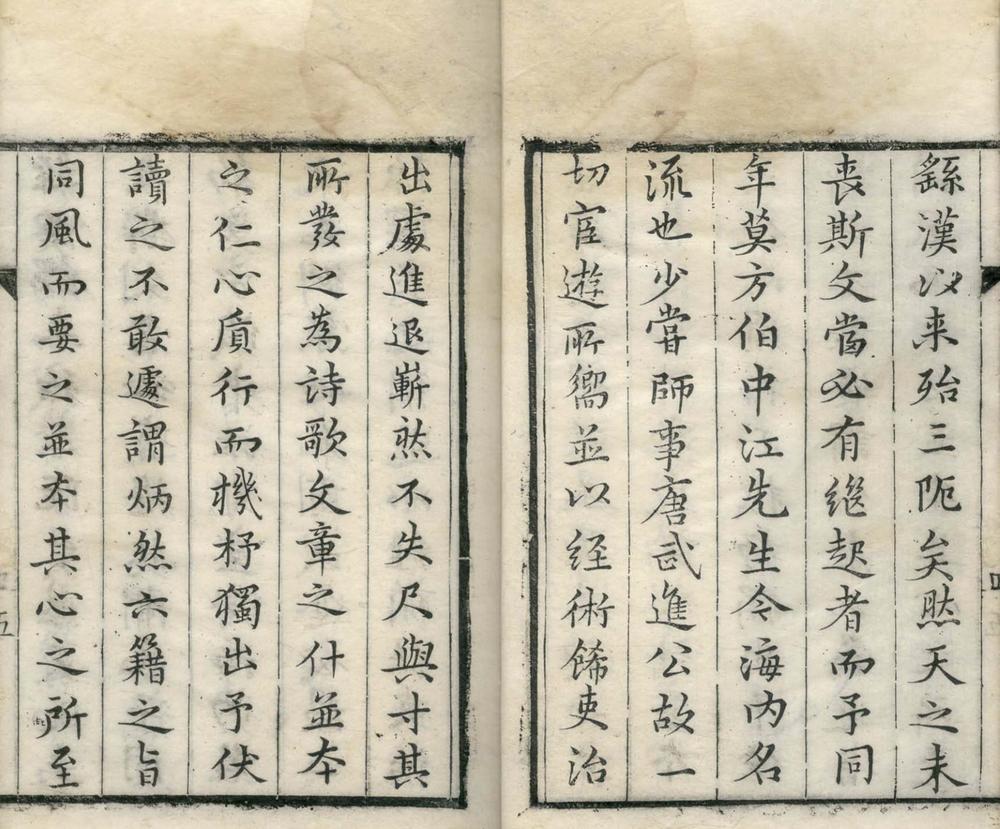 繇漢以来殆三阨矣然天之未
喪斯文當必有继起者而予同
年莫方伯中江先生今海内名
流也少嘗師事唐武進公故一
切宦遊所嚮並以経術餙吏治
出處進退嶄然不失尺與寸其
所發之為詩歌文章之什並本
之仁心质行而機杼獨出予伏
讀之不敢遽謂炳然六籍之旨
同風而要之並本其心之所至